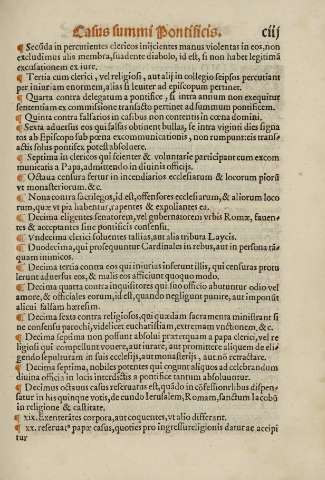 Casus summi Pontificis. ciij
¶ Secūda in percutientes clericos inijcientes manus violentas in eos, non
excludimus alia membra, suadente diabolo, id est, si non habet legitimā
excusationem ex iure.
¶ Tertia cum clerici, vel religiosi, aut alij in collegio seipsos percutiant
per iniuriam enormem, alias si leuiter ad episcopum pertinet.
¶ Quarta contra delegatum a pontifice, si intra annum non exequitur
sententiam ex commissione transacto pertinet ad summum pontificem.
¶ Quinta contra falsarios in casibus non contentis in cœna domini.
¶ Sexta aduersus eos qui falsas obtinent bullas, se intra viginti dies signa
tos ab Episcopo sub pœna excommunicationis, non rumpunt: eis trans-
actis solus pontifex potest absoluere.
¶ Septima in clericos qui scienter & voluntarie participant cum excom
municatis a Papa, admittendo in diuinis officijs.
¶ Octaua censura fertur in incendiarios ecclesiarum & locorum piorū
vt monasteriorum. &c.
¶ Nona contra sacrilegos, id est, offensores ecclesiarum, & aliorum loco
rum, quæ vt pia habentur, rapentes & expoliantes ea.
¶ Decima eligentes senatorem, vel gubernatorem vrbis Romæ, fauen-
tes & acceptantes sine pontificis consensu.
¶ Vndecima clerici soluentes tallias, aut alia tributa Laycis.
¶ Duodecima, qui prosequuntur Cardinales in rebus, aut in persona tā-
quam inimicos.
¶ Decima tertia contra eos qui iniurias inferunt illis, qui censuras protu
lerunt aduersus eos, & malis eos afficiunt quoquo modo.
¶ Decima quarta contra inquisitores qui suo officio abutuntur odio vel
amore, & officiales eorum, id est, quando negligunt punire, aut imponūt
alicui falsam hæresim.
¶ Decima sexta contra religiosos, qui quædam sacramenta ministrant si
ne consensu parochi, videlicet eucharistiam, extremam vnctionem, & c.
¶ Decima septima non possunt absolui præterquam a papa clerici, vel re
ligiosi qui compellunt vouere, aut iurare, aut promittere aliquem de eli-
gendo sepulturam in suis ecclesijs, aut monasterijs, aut nō retractare.
¶ Decima septima, nobiles potentes qui cogunt aliquos ad celebrandum
diuina officia in locis interdictis a pontifice tantum absoluuntur.
¶ Decimus octauus casus reseruatus est, quādo in cōfessione libus dispen-
satur in his quinque votis, de eundo Ierusalem, Romam, sanctum Iacobū
in religione & castitate.
¶ xix. Exenterātes corpora, aut coquentes, vt alio differant.
¶ xx. reseruatꝰ papæ casus, quoties pro ingressu religionis datur ac accipi
tur